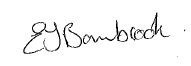 EJ Bambrook.